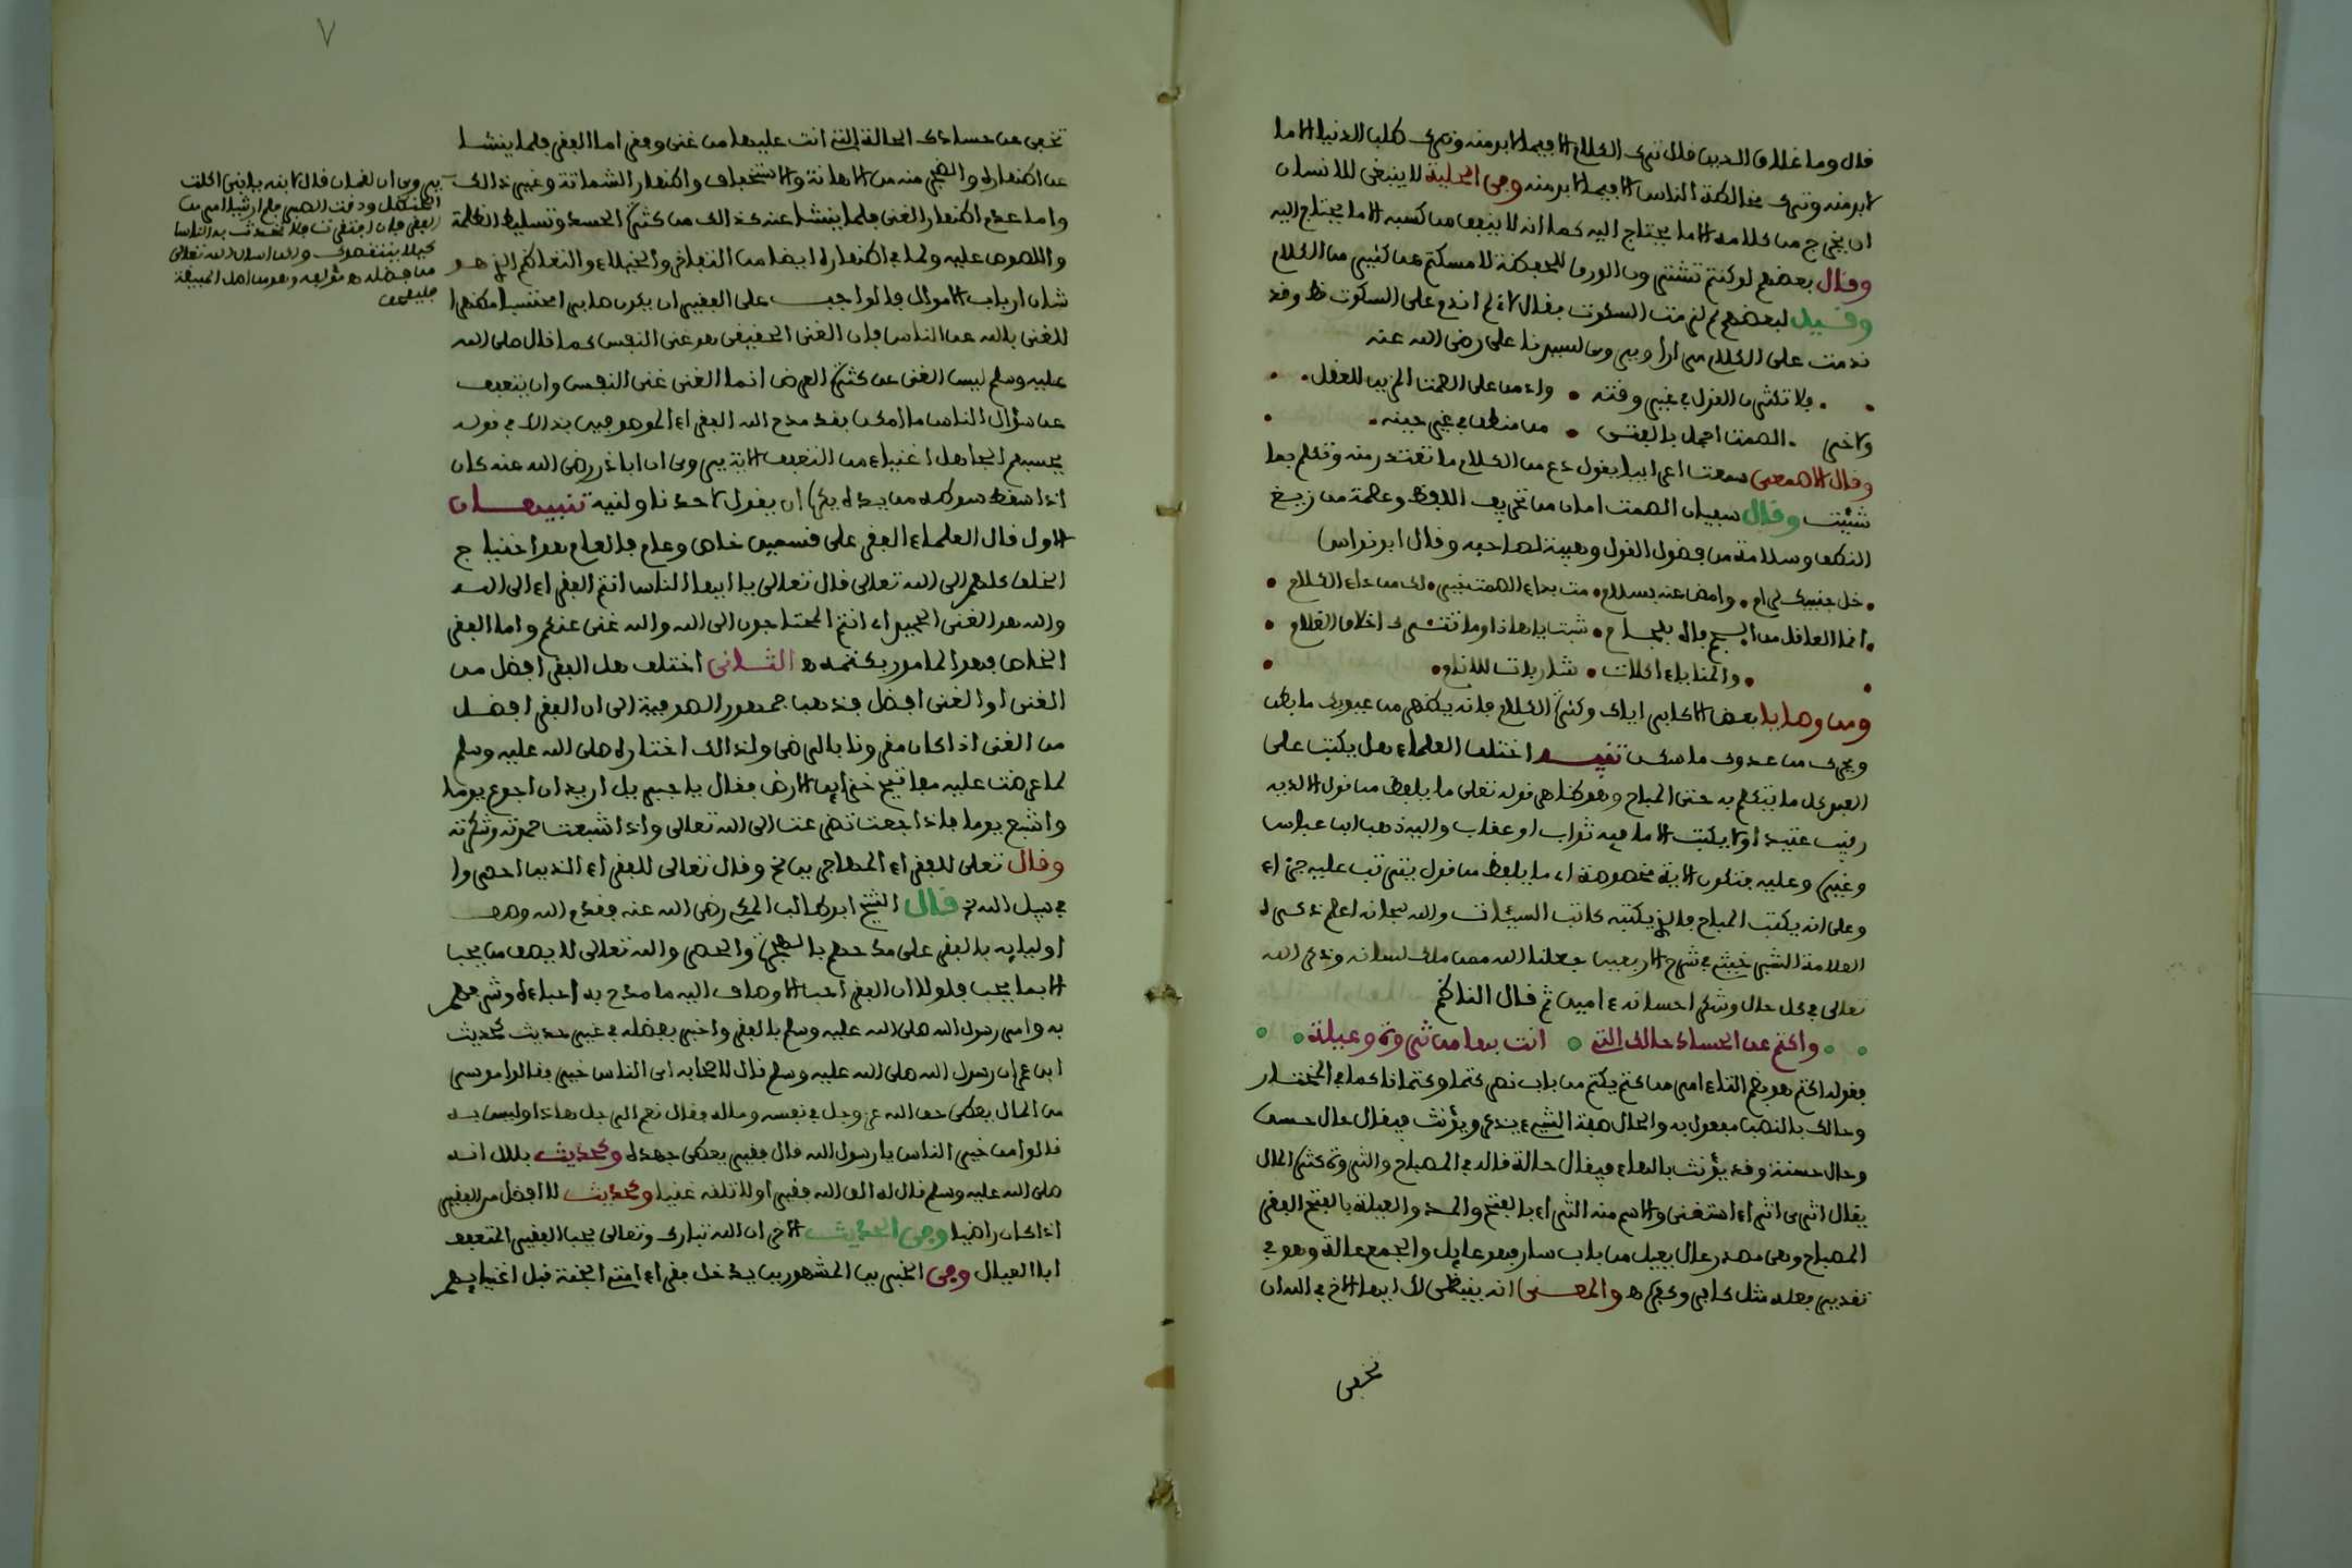 قال وما غلاق الدين قال ترك الكلام الا فيما لابد منه وترك طلب الدنيا الا ما
لابد منه وترك مخالطة الناس الا فيما لابد منه وفى الحلية لا ينبغى للانسان
ان يخرج من كلامه الا ما يحتاج اليه كما انه لا ينفق من كسبه الا ما يحتاج اليه
وقال بعضهم لو كنتم تشترون الورق للحفظة لامسكتم عن كثير من الكلام
وقيل لبعضهم لم لزمت السكوت فقال لانى لم اندم على السكوت قط وقد
ندمت على الكلام مرارا ويروى لسيدنا على رضى الله عنه
فلا تكثرن القول فى غير وقته وادمن على الصمت المزين للعقل
ولاخر الصمت اجمل بالفتى من منطق فى غير حينه
وقال الاصمعى سمعت اعرابيا يقول دع من الكلام ما تعتذر منه وتكلم بما
شئت وقال سفيان الصمت امان من تحريف اللفظ وعصمة من زيغ
النطق وسلامة من فضول القول وهيبة لصاحبه وقال ابو نواس
خل جنبيك لرام وامض عنه بسلام مت بداء الصمت خير لك من داء الكلام
انما العاقل من الجم فاه بلجام شبت يا هذا وما تترك اخلاق الغلام
والمنايا ءاكلات شاربات للانام
ومن وصايا بعض الاكابر اياك وكثرة الكلام فانه يظهر من عيوبك ما بطن
ويحرك من عدوك ما سكن تنبيه اختلف العلماء هل يكتب على
العبد كل ما يتكلم به حتى المباح وهو ظاهر قوله تعلى ما يلفظ من قول الا لديه
رقيب عتيد او لا يكتب الا ما فيه ثواب او عقاب واليه ذهب ابن عباس
وغيره وعليه فتكون الاية مخصوصة اى ما يلفظ من قول يترتب عليه جزاء
وعلى انه يكتب المباح فالذى يكتبه كاتب السيئات والله سبحانه اعلم ذكره
العلامة الشبرخيتى فى شرح الاربعين جعلنا الله ممن ملك لسانه وذكر الله
تعالى فى كل حال وشكر احسانه ءامين ثم قال الناظم
واكتم عن الحساد حالك التى انت بها من ثروة وعيلة
فقوله اكتم هو بضم التاء امر من كتم يكتم من باب نصر كتما وكتمانا كما فى المختار
وحالك بالنصب مفعول به والحال صفة الشىء يذكر ويؤنث فيقال حال حسن
وحال حسنة وقد يؤنث بالهاء فيقال حالة قاله فى المصباح والثروة كثرة المال
يقال اثرى اثراء استغنى والاسم منه الثراء بالفتح والمد والعيلة بالفتح الفقر
المصباح وهى مصدر عال يعيل من باب سار فهو عايل والجمع عالة وهو فى
تقدير فعلة مثل كافر وكفرة ه والمعنى انه ينبغى لك ايها الاخ فى الله ان
تخفى
٧
تخفى عن حسادك الحالة التى انت عليها من غنى وفقر اما الفقر فلما ينشا
عن اظهاره والضجر منه من الاهانة والاستخفاف واظهار الشماتة وغير ذالك
واما عدم اظهار الغنى فلما ينشا عنه كذالك من كثرة الحسد وتسليط الظلمة
واللصوص عليه ولما فى اظهاره ايضا من التفاخر والخيلاء والتعاظم الذى هو
شان ارباب الاموال فالواجب على الفقير ان يكون صابرا محتسبا مظهرا
للغنى بالله عن الناس فان الغنى الحقيقى هو غنى النفس كما قال صلى الله
عليه وسلم ليس الغنى عن كثرة العرض انما الغنى غنى النفس وان يتعفف
عن سؤال الناس ما امكن فقد مدح الله الفقراء الموصوفين بذالك فى قوله
يحسبهم الجاهل اغنياء من التعفف الاية يروى ان اباذر رضى الله عنه كان
اذا سقط سوطه من يده يكره ان يقول لاحد ناولنيه تنبيهان
الاول قال العلماء الفقر على قسمين خاص وعام فالعام هو احتياج
الخلق كلهم الى الله تعالى قال تعالى يا ايها الناس انتم الفقراء الى الله
والله هو الغنى الحميد اى انتم المحتاجون الى الله والله غنى عنكم واما الفقر
الخاص فهو المامور بكتمه ه الثانى اختلف هل الفقر افضل من
الغنى او الغنى افضل فذهب جمهور الصوفية الى ان الفقر افضل
من الغنى اذا كان مقرونا بالرضى ولذالك اختاره صلى الله عليه وسلم
لما عرضت عليه مفاتيح خزاين الارض فقال يا جبريل اريد ان اجوع يوما
واشبع يوما فاذا جعت تضرعت الى الله تعالى واذا شبعت حمدته وشكرته
وقال تعلى للفقراء المهاجرين الخ وقال تعالى للفقراء الذين احصروا
فى سبيل الله الخ قال الشيخ ابو طالب المكى رضى الله عنه فقدم الله وصف
اوليايه بالفقر على مدحهم بالهجرة والحصر والله تعالى لا يصف من يحب
الا بما يحب فلولا ان الفقر احب الاوصاف اليه ما مدح به احباءه وشرفهم
به وامر رسول الله صلى الله عليه وسلم بالفقر واخبر بفضله فى غير حديث كحديث
ابن عمر ان رسول الله صلى الله عليه وسلم قال لاصحابه اى الناس خير فقالوا موسر
من المال يعطى حق الله عز وجل فى نفسه وماله فقال نعم الرجل هاذا وليس به
قالوا من خير الناس يا رسول الله قال فقير يعطى جهده وكحديث بلال انه
صلى الله عليه وسلم قال له الق الله فقيرا ولا تلقه غنيا وكحديث لا افضل من الفقير
اذا كان راضيا وفى الحديث الاخر ان الله تبارك وتعالى يحب الفقير المتعفف
ابا العيال وفى الخبرين المشهورين يدخل فقراء امتى الجنة قبل اغنيايهم
يروى ان لقمان قال لابنه يا بنى اكلت
الحنظل وذقت الصبر فلم ار شيئا امر من
الفقر فان افتقرت فلا تحدث به الناس
كيلا ينتقصوك ولكن اسال الله تعالى
من فضله ه